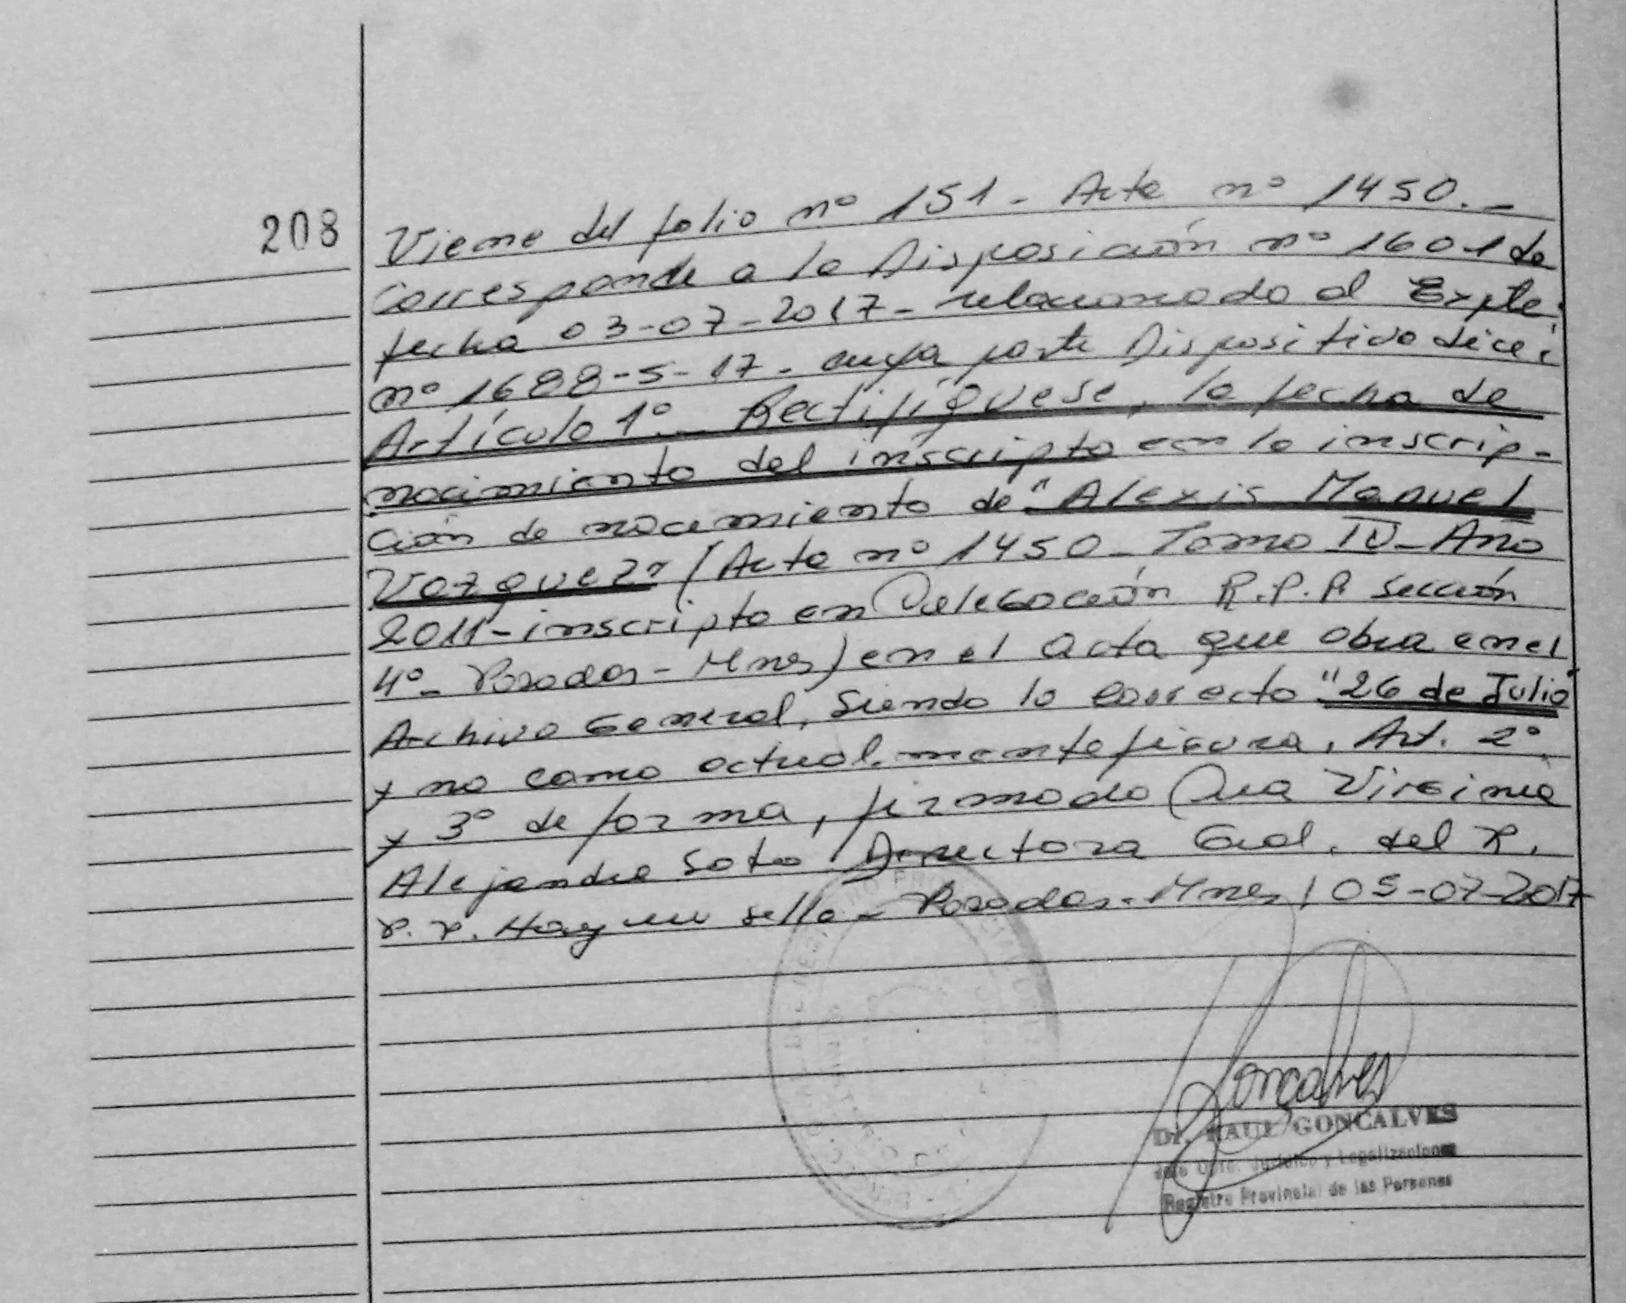 208
Viene del folio nº 151 - Acta nº 1450.-
Corresponde a la Disposición nº 1601 de
fecha 03-07-2017- relacionado al Expte.
nº 1688-S-17- cuya parte Dispositiva dice:
Artículo 1º.- Rectifíquese, la fecha de
nacimiento del inscripto en la inscrip-
ción de nacimiento de "Alexis Manuel
Vazquez" (Acta nº 1450- Tomo IV- Año
2011- inscripta en Delegación R.P.P. Sección
4º- Posadas- Mnes) en el acta que obra en el
Archivo General, siendo lo correcto "26 de Julio"
y no como actualmente figura, Art. 2º
y 3º de forma, firmado Dra Virginia
Alejandra Soto Directora Gral. del R.
P. P. Hay un sello - Posadas- Mnes, 05-07-2017
Goncalves
Dr. RAUL GONCALVES
Jefe Dpto. Jurídico y Legalizaciones
Registro Provincial de las Personas